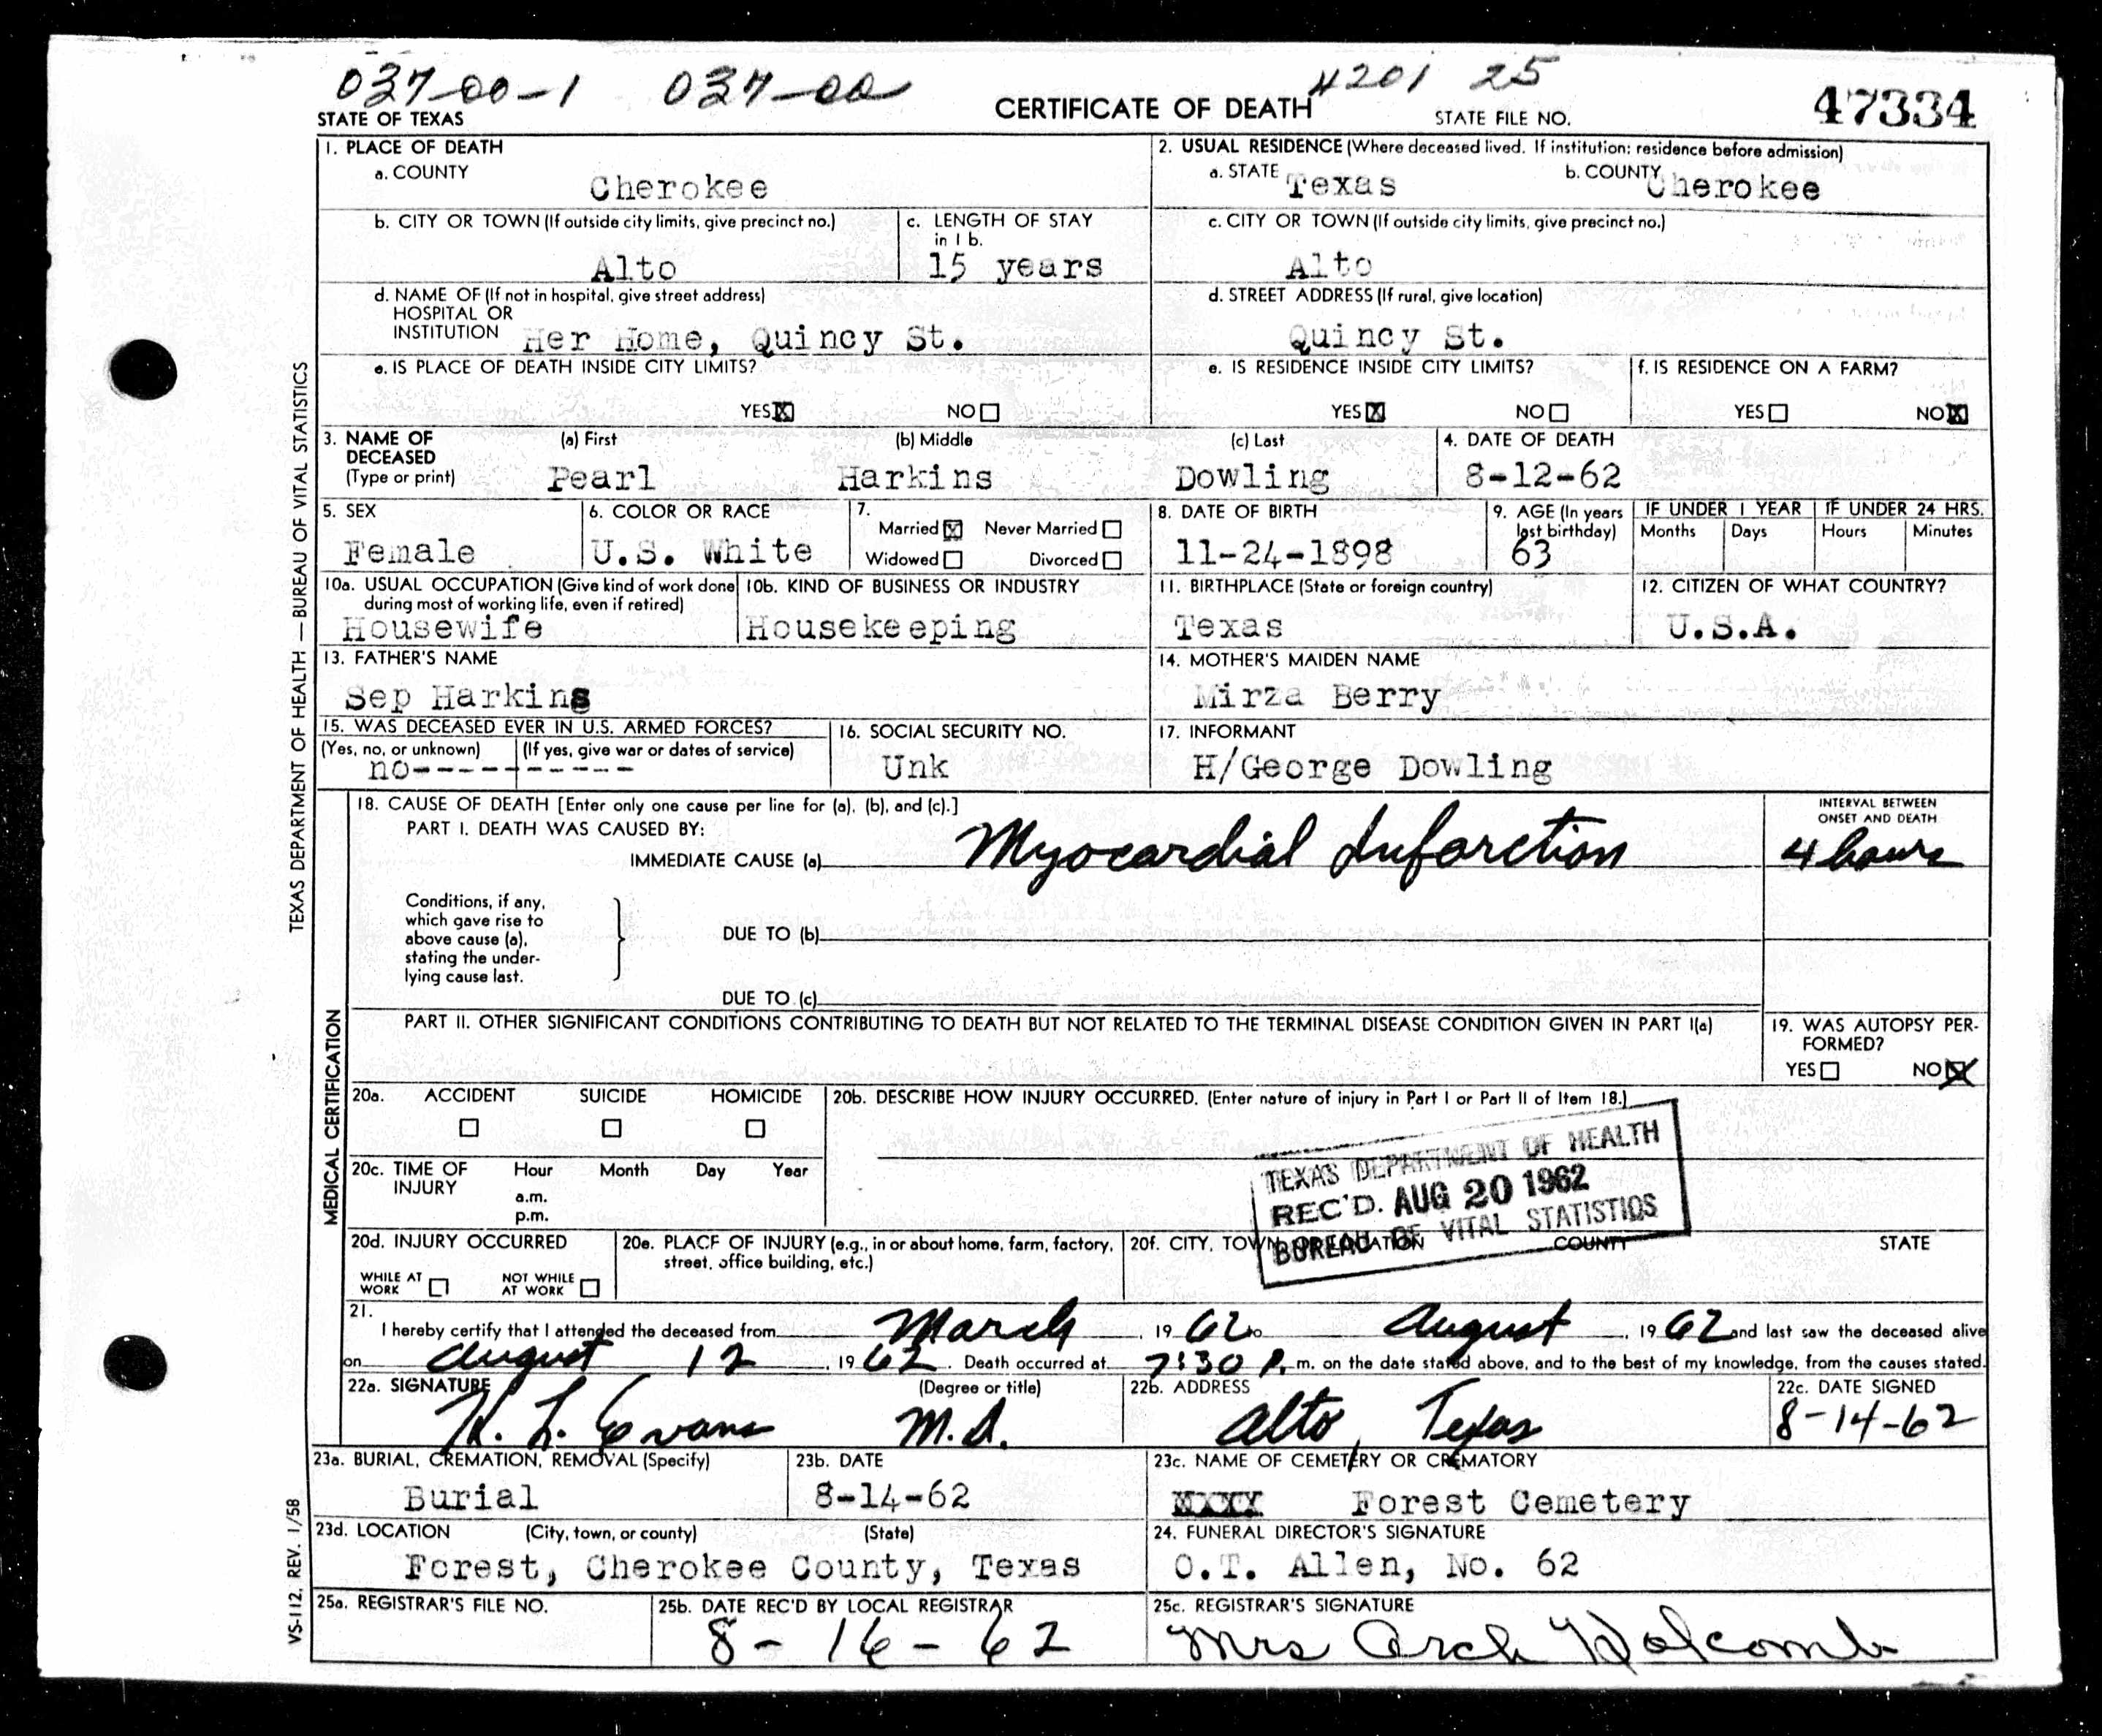 037-00-1 037-00 4201 25
STATE OF TEXAS CERTIFICATE OF DEATH STATE FILE NO. 47334
1. PLACE OF DEATH
a. COUNTY Cherokee
2. USUAL RESIDENCE (Where deceased lived. If institution: residence before admission)
a. STATE Texas b. COUNTY Cherokee
b. CITY OR TOWN (If outside city limits, give precinct no.) Alto
c. LENGTH OF STAY in 1 b. 15 years
c. CITY OR TOWN (If outside city limits, give precinct no.) Alto
d. NAME OF (If not in hospital, give street address)
HOSPITAL OR
INSTITUTION Her Home, Quincy St.
d. STREET ADDRESS (If rural, give location)
Quincy St.
e. IS PLACE OF DEATH INSIDE CITY LIMITS?
YES X NO
e. IS RESIDENCE INSIDE CITY LIMITS?
YES X NO
f. IS RESIDENCE ON A FARM?
YES NO X
3. NAME OF DECEASED (Type or print)
(a) First (b) Middle (c) Last
Pearl Harkins Dowling
4. DATE OF DEATH
8-12-62
5. SEX
Female
6. COLOR OR RACE
U.S. White
7.
Married X Never Married
Widowed Divorced
8. DATE OF BIRTH
11-24-1898
9. AGE (In years last birthday)
63
IF UNDER 1 YEAR IF UNDER 24 HRS.
Months Days Hours Minutes
10a. USUAL OCCUPATION (Give kind of work done
during most of working life, even if retired)
Housewife
10b. KIND OF BUSINESS OR INDUSTRY
Housekeeping
11. BIRTHPLACE (State or foreign country)
Texas
12. CITIZEN OF WHAT COUNTRY?
U.S.A.
13. FATHER'S NAME
Sep Harkins
14. MOTHER'S MAIDEN NAME
Mirza Berry
15. WAS DECEASED EVER IN U.S. ARMED FORCES?
(Yes, no, or unknown) (If yes, give war or dates of service)
no-----------
16. SOCIAL SECURITY NO.
Unk
17. INFORMANT
H/George Dowling
18. CAUSE OF DEATH [Enter only one cause per line for (a), (b), and (c).]
PART I. DEATH WAS CAUSED BY:
IMMEDIATE CAUSE (a) Myocardial Infarction
INTERVAL BETWEEN
ONSET AND DEATH
4 hours
Conditions, if any,
which gave rise to
above cause (a),
stating the under-
lying cause last.
DUE TO (b)
DUE TO (c)
PART II. OTHER SIGNIFICANT CONDITIONS CONTRIBUTING TO DEATH BUT NOT RELATED TO THE TERMINAL DISEASE CONDITION GIVEN IN PART I(a)
19. WAS AUTOPSY PER-
FORMED?
YES NO X
20a. ACCIDENT SUICIDE HOMICIDE
20b. DESCRIBE HOW INJURY OCCURRED. (Enter nature of injury in Part I or Part II of Item 18.)
20c. TIME OF INJURY Hour Month Day Year
a.m.
p.m.
TEXAS DEPARTMENT OF HEALTH
REC'D. AUG 20 1962
BUREAU OF VITAL STATISTICS
20d. INJURY OCCURRED
WHILE AT WORK NOT WHILE AT WORK
20e. PLACE OF INJURY (e.g., in or about home, farm, factory,
street, office building, etc.)
20f. CITY, TOWN, OR LOCATION COUNTY STATE
21.
I hereby certify that I attended the deceased from March, 1962 to August, 1962 and last saw the deceased alive
on August 12, 1962. Death occurred at 7:30 P. m. on the date stated above, and to the best of my knowledge, from the causes stated.
22a. SIGNATURE (Degree or title)
H. L. Evans M.D.
22b. ADDRESS
Alto, Texas
22c. DATE SIGNED
8-14-62
23a. BURIAL, CREMATION, REMOVAL (Specify)
Burial
23b. DATE
8-14-62
23c. NAME OF CEMETERY OR CREMATORY
XXXX Forest Cemetery
23d. LOCATION (City, town, or county) (State)
Forest, Cherokee County, Texas
24. FUNERAL DIRECTOR'S SIGNATURE
O.T. Allen, No. 62
25a. REGISTRAR'S FILE NO.
25b. DATE REC'D BY LOCAL REGISTRAR
8-16-62
25c. REGISTRAR'S SIGNATURE
Mrs Arch Holcomb
TEXAS DEPARTMENT OF HEALTH — BUREAU OF VITAL STATISTICS
MEDICAL CERTIFICATION
VS-112, REV. 1/58